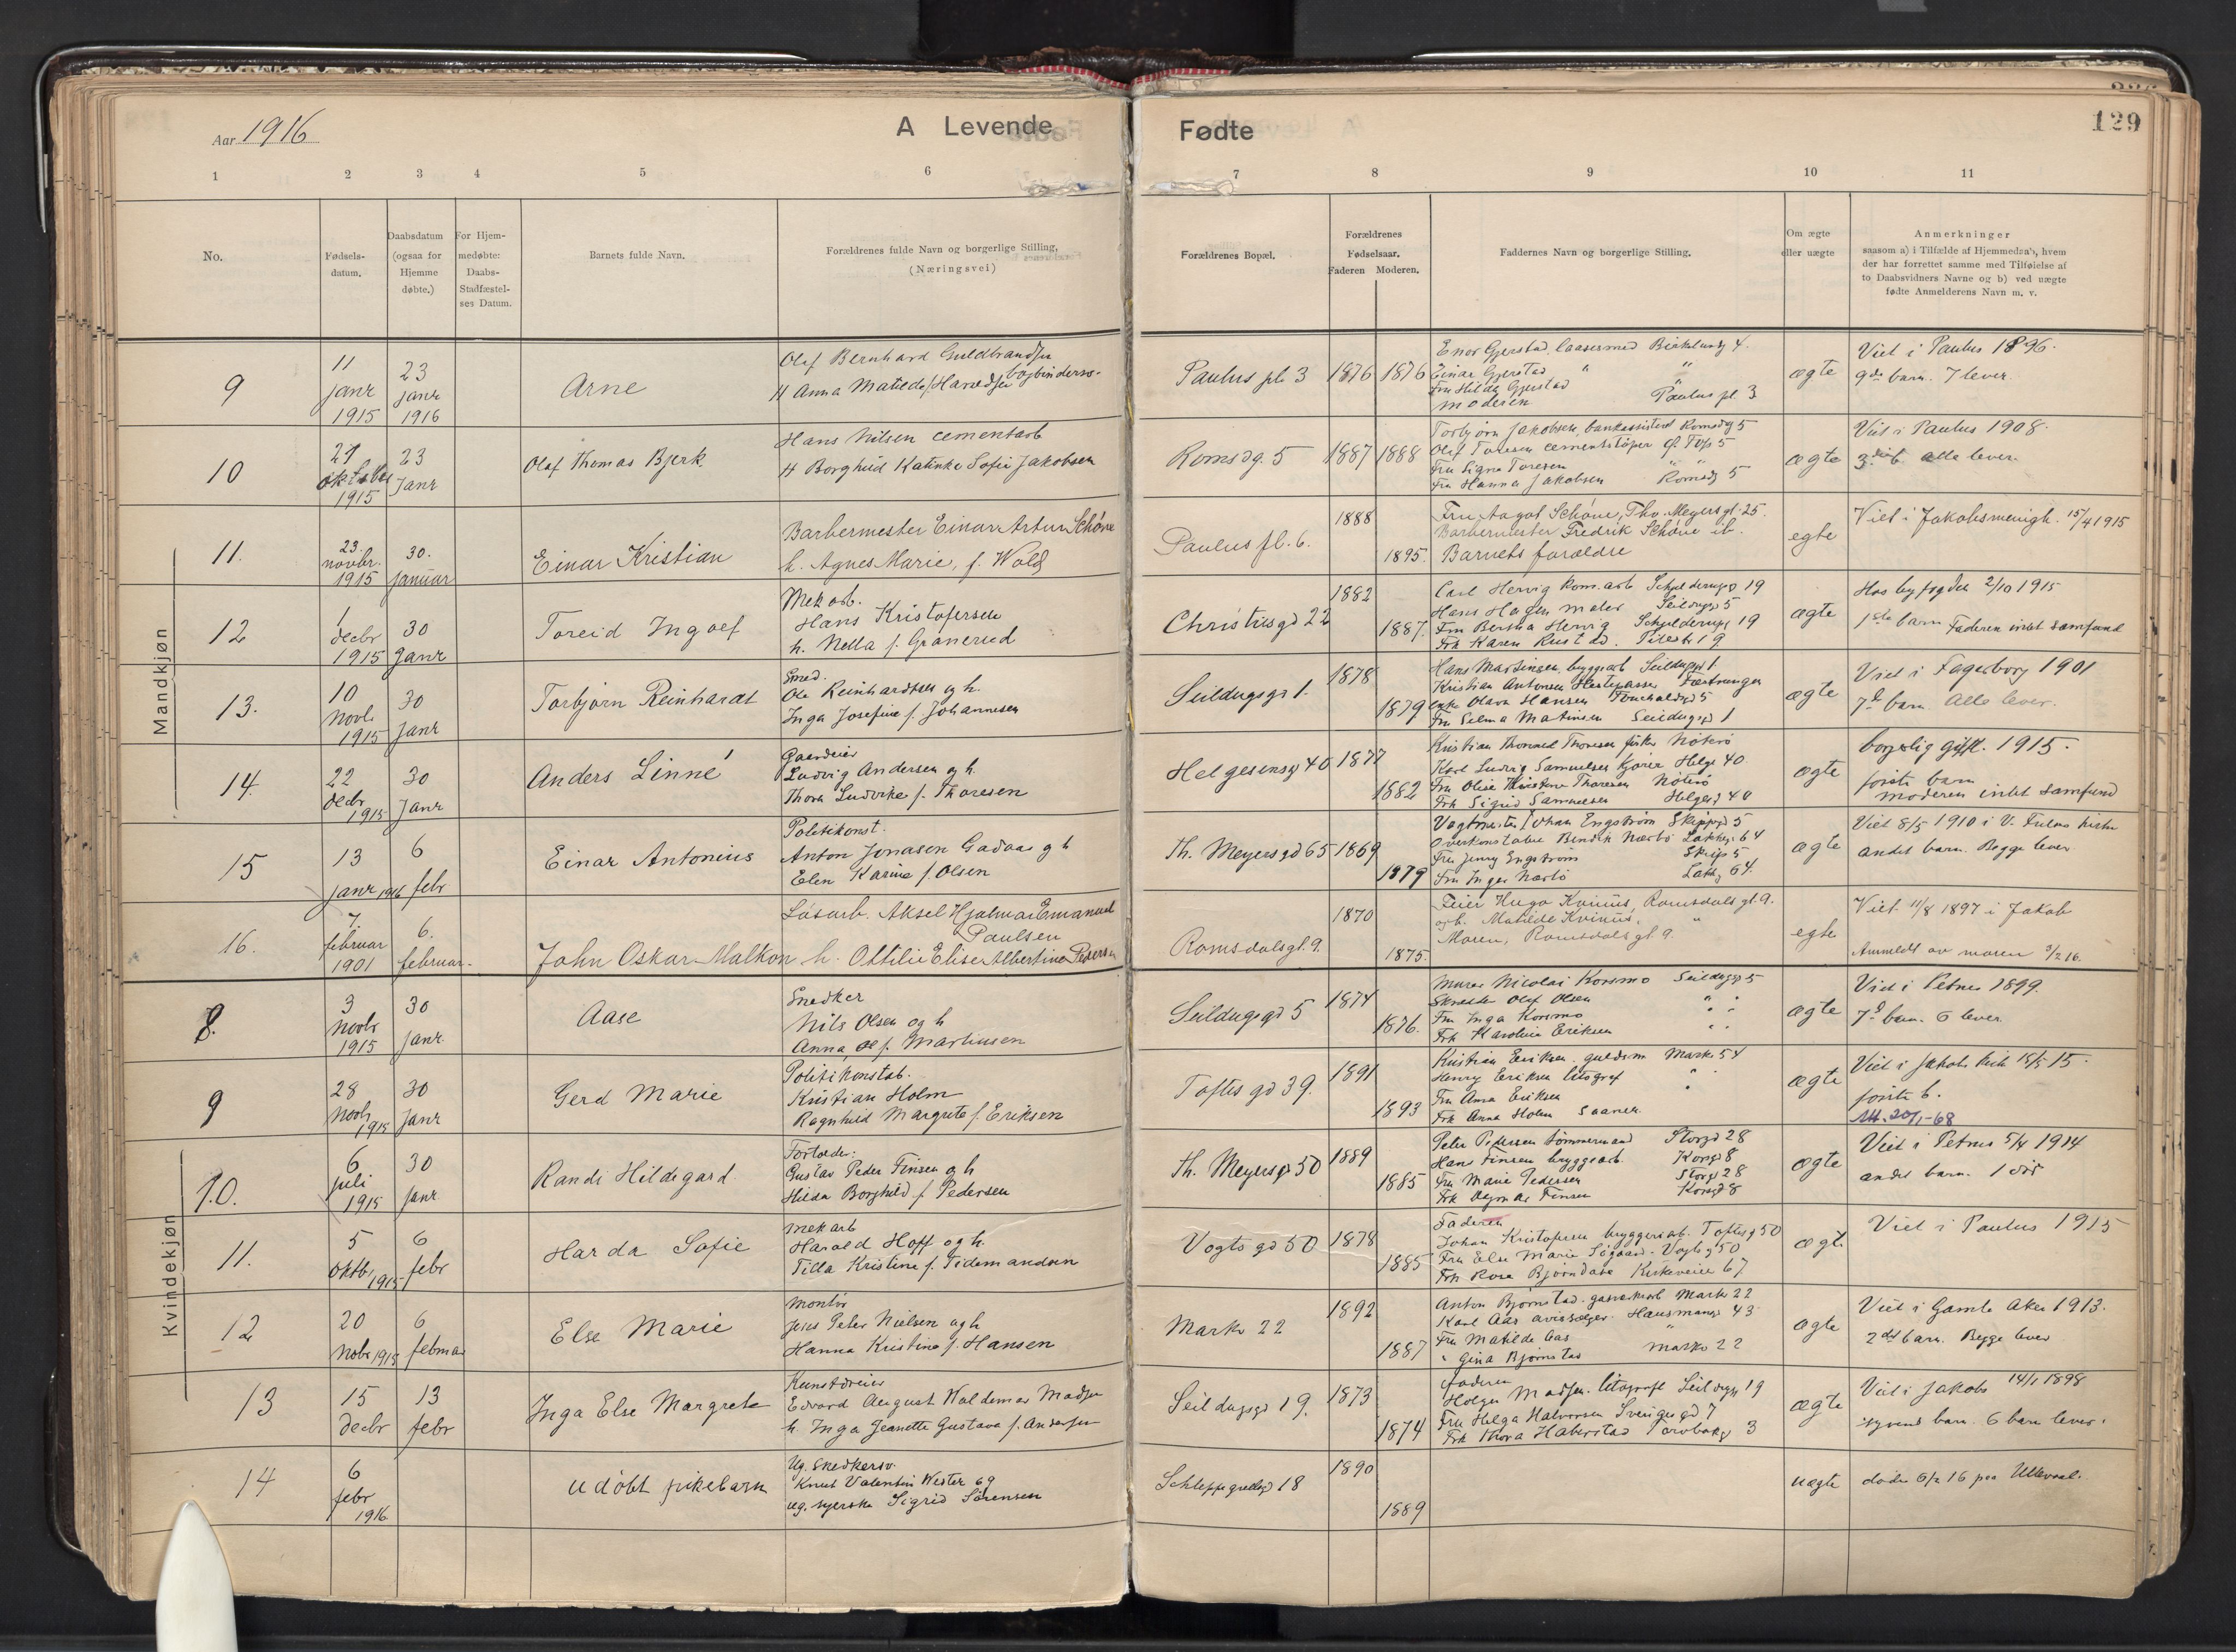 129
Aar 1916
A Levende
Fødte
1 2 3 4 5 6 7 8 9 10 11
No.
Fødsels-
datum.
Daabsdatum
(ogsaa for
Hjemme
døbte.)
For Hjem-
medøbte:
Daabs-
Stadfæstel-
ses Datum.
Barnets fulde Navn.
Forældrenes fulde Navn og borgerlige Stilling,
(Næringsvei)
Forældrenes Bopæl.
Forældrenes
Fødselsaar.
Faderen Moderen.
Faddernes Navn og borgerlige Stilling.
Om ægte
eller uægte
Anmerkninger
saasom a) i Tilfælde af Hjemmedaab, hvem
der har forrettet samme med Tilføielse af
to Daabsvidners Navne og b) ved uægte
fødte Anmelderens Navn m. v.
Mandkjøn
9
11
janr
1915
23
janr
1916
Arne
Olaf Bernhard Guldbrandsen
bogbindersv.
H Anna Matilde
Paulus pl 3
1876 1876
Einar Gjerstad
Fru Hilda Gjerstad
Moderen Paulus pl 3
ægte
Viet i Paulus 1896.
9de barn. 7 lever.
10
oktober
1915
23
Janr
Olaf Thomas Bjerk.
Hans Nilsen cementarb
H Borghild Katinka Sofie Jakobsen
Romsdg. 5
1887 1888
Torbjørn Jakobsen, bankassistent Romsdg 5
Olaf Toresen cementstøper
Fru Signe Toresen
Fru Hanna Jakobsen Romsdg 5
ægte
Viet i Paulus 1908.
alle lever.
11.
23.
novbr.
1915
30.
januar
Einar Kristian
Barbermester Einar Artur Schøne
h. Agnes Marie, f. Wold
Paulus pl. 6.
1888
1895.
Fru Aagot Schøne, Thv. Meyers gt. 25.
Barbermester Fredrik Schøne ib.
Barnets forældre
egte
Viet i Jakobsmenigh. 15/4 1915
12
1
decbr
1915
30
Janr
Toreid Ingolf
Mek arb.
Hans Kristofersen
h. Nella f. Granerud
Christiesgd 22
1882
1887.
Carl Herwig kom.arb Schjelderupsg 19
Hans Hagen maler Seildugsg 5
Fru Bertha Herwig Schjelderupsg 19
Frk Karen Rustad. Pilestr 19
ægte
Hos byfogden 2/10 1915
1ste barn Faderen intet samfund
13.
10
Novb
1915
30
Janr
Torbjørn Reinhardt
Smed.
Ole Reinhardtsen og h.
Inga Josefine f. Johannesen
Seildugsgd 1.
1878
1879
Hans Martinsen, bryggearb Seildugsg 1
Kristian Antonsen
enke Olava Hansen
Fru Selma Martinsen Seildugsgd 1
ægte
Viet i Fagerborg 1901
7de barn Alle lever.
14.
22
Decbr
1915
30
Janr
Anders Linné
Gaardeier
Ludvig Andersen og h.
Thora Ludvikke f. Thoresen
Helgesensgd 40
1877
1882
Kristian Thorvald Thoresen fisker Nøterø
Karl Ludvig Samuelsen kjører Helgs 40
Fru Olise Thoresen Nøterø
Frk Sigrid Samuelsen Helgesg 40
ægte
borgerlig gift. 1915.
første barn
moderen intet samfund
15
13
janr 1916
6
febr
Einar Antonius
Politikonst.
Anton Jonasen Gadaas g h
Elen Karine f. Olsen
Th. Meyersgd 65
1869
1879
Vagtmester Johan Engstrøm Skippg 5
Overkonstabel Bendik Nærbø Lakkeg 64
Fru Jenny Engstrøm Skip 5
Fru Inger Nærbø Lakkg 64.
ægte
andet barn. Begge lever
16.
7.
februar
1901
6.
februar.
John Oskar Malkon
Løsarb. Aksel Hjalmar Emanuel
Paulsen
h. Ottilie Elise Albertine Pedersen
Romsdalsgt. 9.
1870
1875.
Feier Hugo Kvinius, Romsdals gt. 9.
og h. Matilde Kvinius. "
Moren, Romsdals gt. 9.
egte
Viet 11/8 1897 i Jakob
Anmeldt av moren 3/2 16.
Kvindekjøn
8.
3
Novb
1915
30
Janr.
Aase
Snedker
Nils Olsen og h
Anna f. Martinsen
Seildugsgd 5
1874
1876.
Murer Nicolai Korsmo Seildugsg 5
Olaf Olsen " "
Fru Inga Korsmo " "
Frk Karoline Eriksen " "
ægte
Viet i Petrus 1899.
7de barn. 6 lever.
9
28
Novb
1915
30
Janr
Gerd Marie
Politikonstab.
Kristian Holm
Ragnhild Margrete f. Eriksen
Toftes gd 39.
1891
1893
Kristian Eriksen. guldsm Markv 54
Henry Eriksen litograf " "
Fru Anna Eriksen "
Frk Anna Holm Saaner.
ægte
første b.
10.
6
juli
1915
30
Janr
Randi Hildegard
Gustav Peder Finsen og h
Hilda Borghild f. Pedersen
Th. Meyersgd 50
1889
1885
Peter Pedersen tømmermand Storgd 28
Hans Finsen bryggearb. Korsgd 8
Fru Marie Pedersen Storgd 28
Frk Dagmar Finsen Korsgd 8
ægte
andet barn. 1 død
11.
5
oktb 1915
6
febr
Harda Sofie
Mek arb
Harald Hoff og h.
Tilla Kristine f. Tidemandsen
Vogts gd 50
1878
1885
Faderen
Johan Kristofersen bryggeriarb. Toftesg 50
Fru Else Marie Søgaard. Vogts g 50
Frk Rosa Bjørndase Kirkeveien 67
ægt.
Viet i Paulus 1915
12
20
Nobr 1915
6
februar
Else Marie
Montør
Jens Peter Nielsen og h
Hanna Kristine f. Hansen
Markv 22
1892
1887
Anton Bjørnstad. Markv 22
Karl Aas avissælger. Hausmansg 43
Fru Matilde Aas "
" Gina Bjørnstad Markv 22
ægte
Viet i Gamle Aker 1913.
2det barn. Begge lever
13
15
decbr
13
febr
Inga Else Margrete
Kunstdreier
Edvard August Valdemar Madsen
h. Inga Jeanette Gustava f. Andersen
Seildugsgd 19.
1873
1874
Faderen
Holger Madsen. litograf Seildugsg 19
Fru Helga Halvorsen Sverigesgd 7
Frk Thora Haberstad 3
ægte
Viet i Jakobs 14/1 1898
syvende barn. 6 barn lever.
14
6
febr
1916
udøbt pikebarn
Ug. Snedkersv.
Knut Valentin Wester og
ug. syerske Sigrid Sørensen
Schleppegrellsgd 18
1890
1889
uægte
døde 6/2 16 paa Ullevaal.